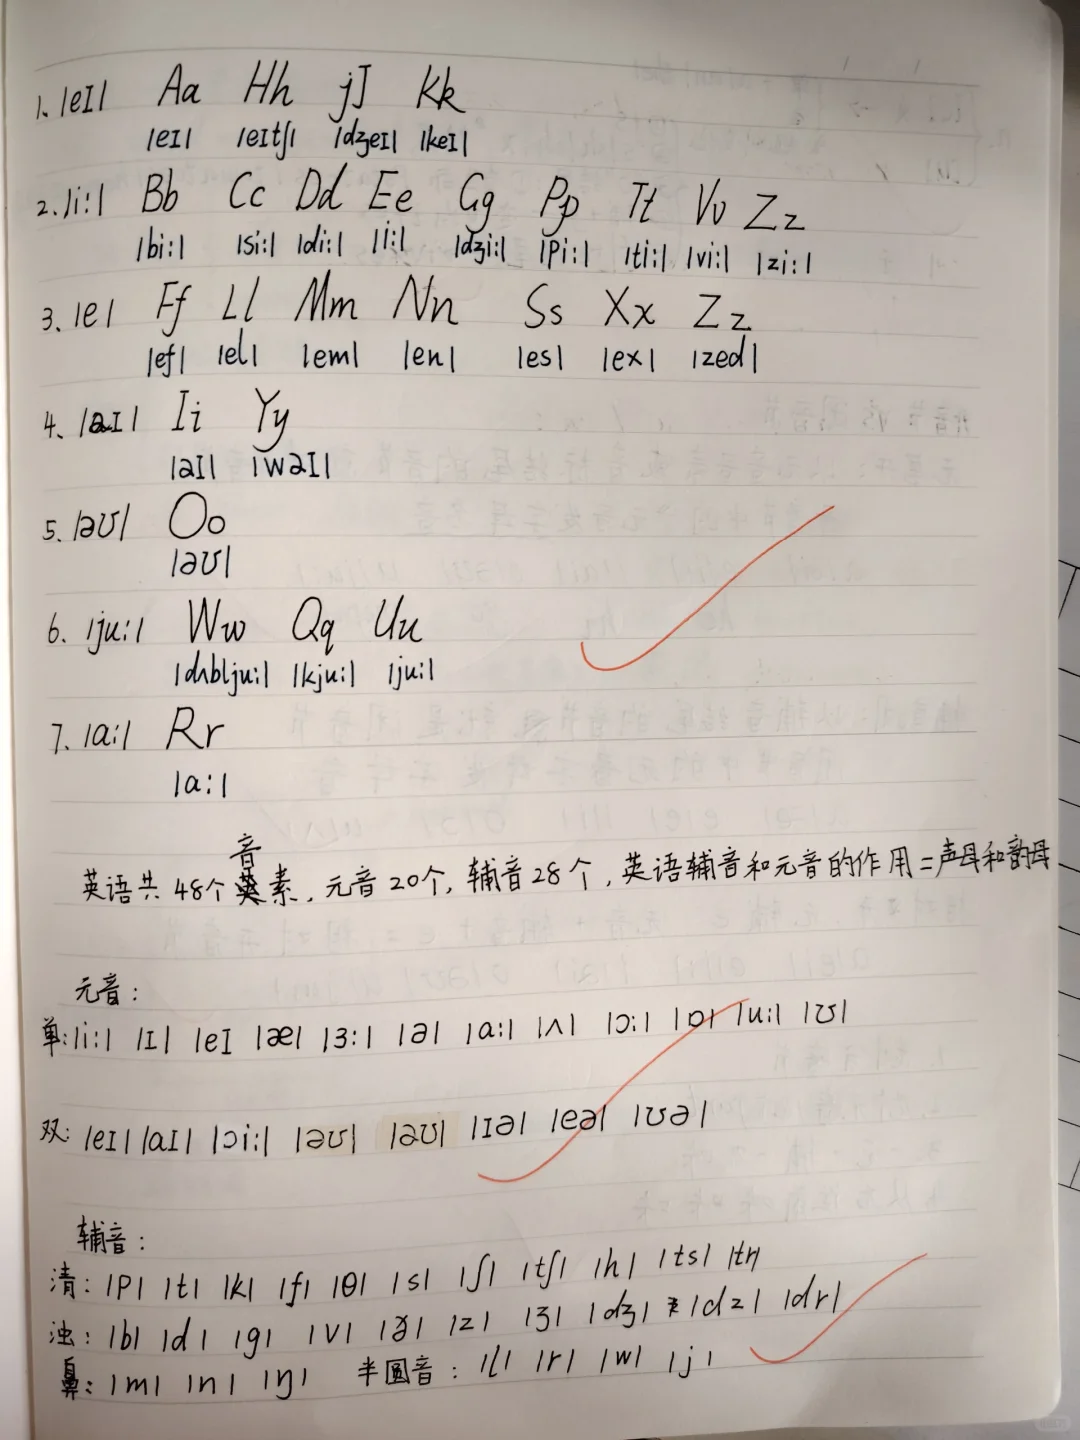 1. /eɪ/ Aa Hh jJ Kk
/eɪ/ /eɪtʃ/ /dʒeɪ/ /keɪ/
2. /i:/ Bb Cc Dd Ee Gg Pp Tt Vv Zz
/bi:/ /si:/ /di:/ /i:/ /dʒi:/ /pi:/ /ti:/ /vi:/ /zi:/
3. /e/ Ff Ll Mm Nn Ss Xx Zz
/ef/ /el/ /em/ /en/ /es/ /ex/ /zed/
4. /aɪ/ Ii Yy
/aɪ/ /waɪ/
5. /əʊ/ Oo
/əʊ/
6. /ju:/ Ww Qq Uu
/dʌblju:/ /kju:/ /ju:/
7. /a:/ Rr
/a:/
英语共48个音素.元音20个,辅音28个,英语辅音和元音的作用=声母和韵母
元音:
单:/i:/ /ɪ/ /eɪ /æ/ /ɜ:/ /ə/ /a:/ /ʌ/ /ɔ:/ /ɒ/ /u:/ /ʊ/
双:/eɪ/ /aɪ/ /ɔi:/ /əʊ/ /əʊ/ /ɪə/ /eə/ /ʊə/
辅音:
清:/p/ /t/ /k/ /f/ /θ/ /s/ /ʃ/ /tʃ/ /h/ /ts/ /tr/
浊:/b/ /d/ /g/ /v/ /ð/ /z/ /ʒ/ /dʒ/ /dz/ /dr/
鼻:/m/ /n/ /ŋ/ 半圆音:/l/ /r/ /w/ /j/